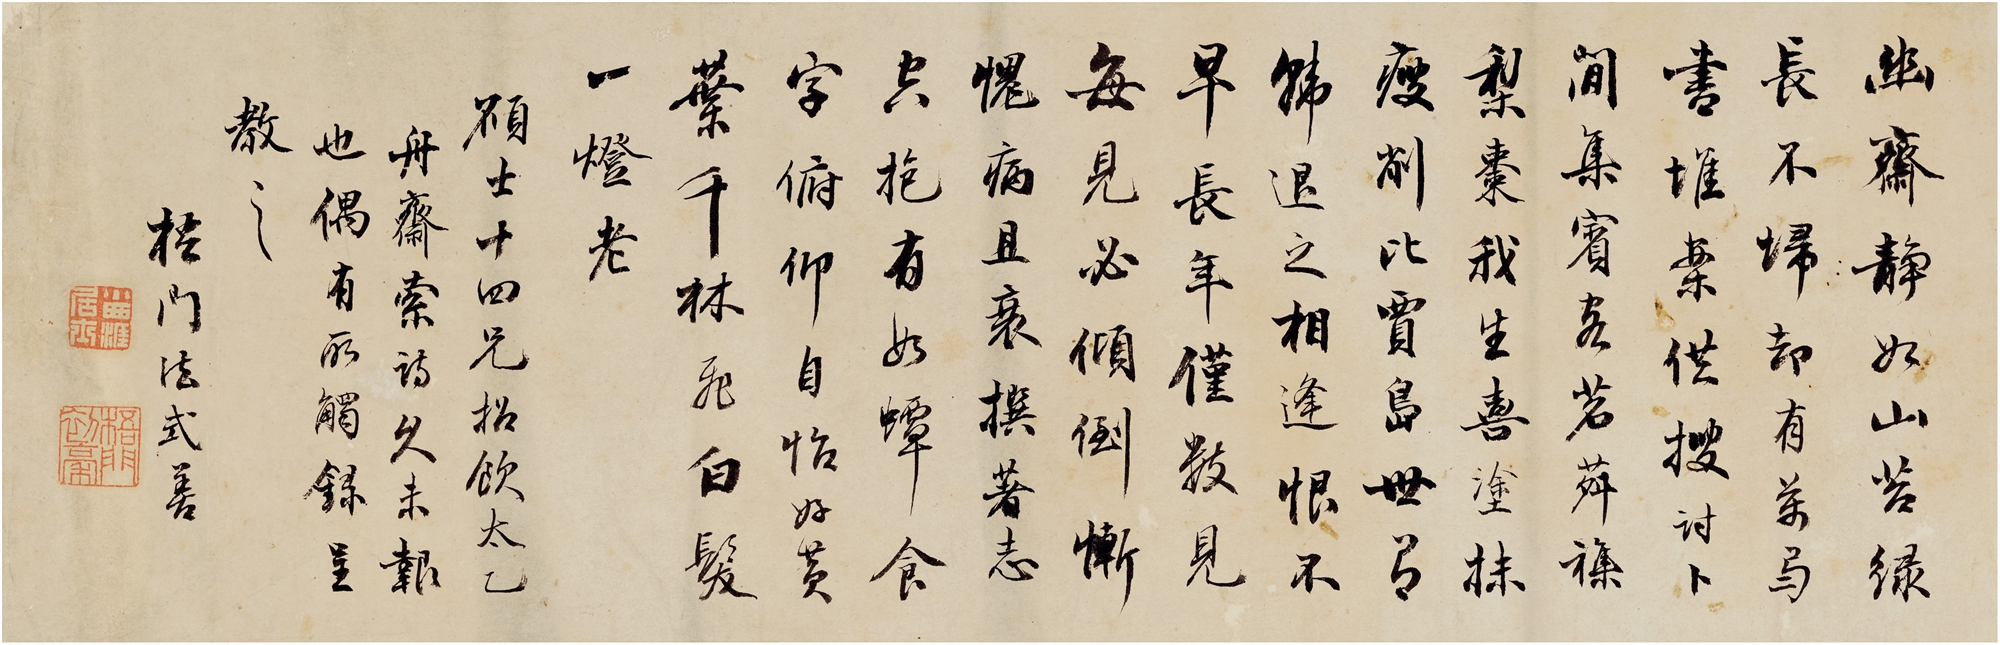 幽齋静如山苔緑
長不掃却有萬马
書堆案供搜討卜
間集賓客茗荈襍
梨棗我生喜塗抹
瘦削比賈島世名
韩退之相逢恨不
早長年僅數見
每見必傾倒慚
愧病且衰撰著志
空抱有如蟫食
字俯仰自怡好黄
葉千林飛白髮
一燈老
碩士十四兄招飲太乙
舟齋索詩久未報
也偶有所觸録呈
教之
梧門法式善
梧門